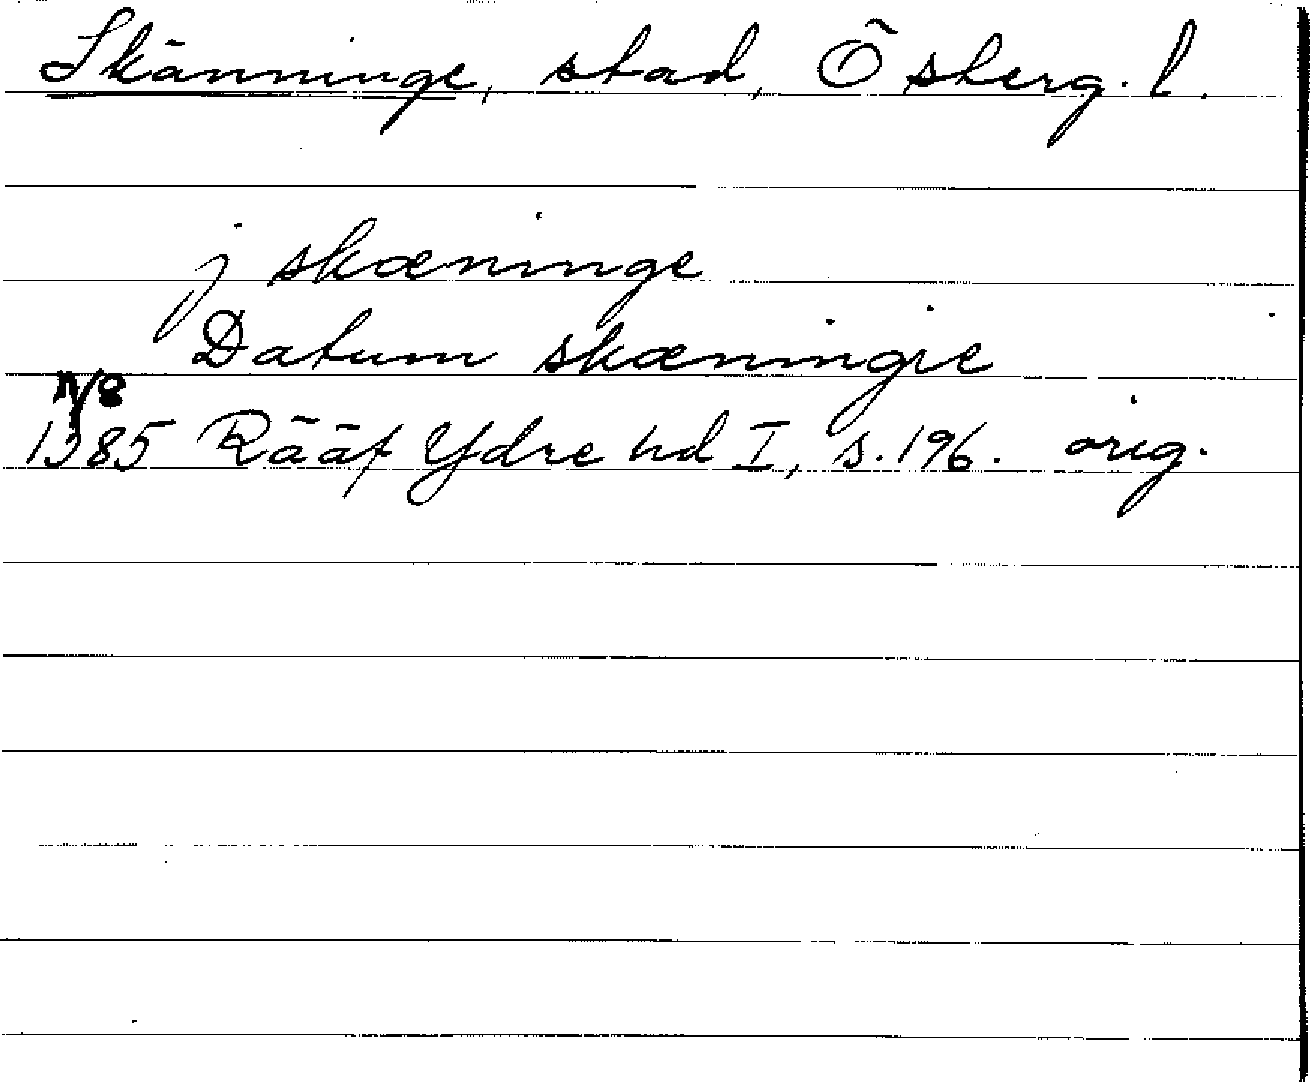 Skänninge, stad, Österg. l.
j skæninge
Datum skæningie
1385 Rääf Ydre hd I, s. 196. orig.